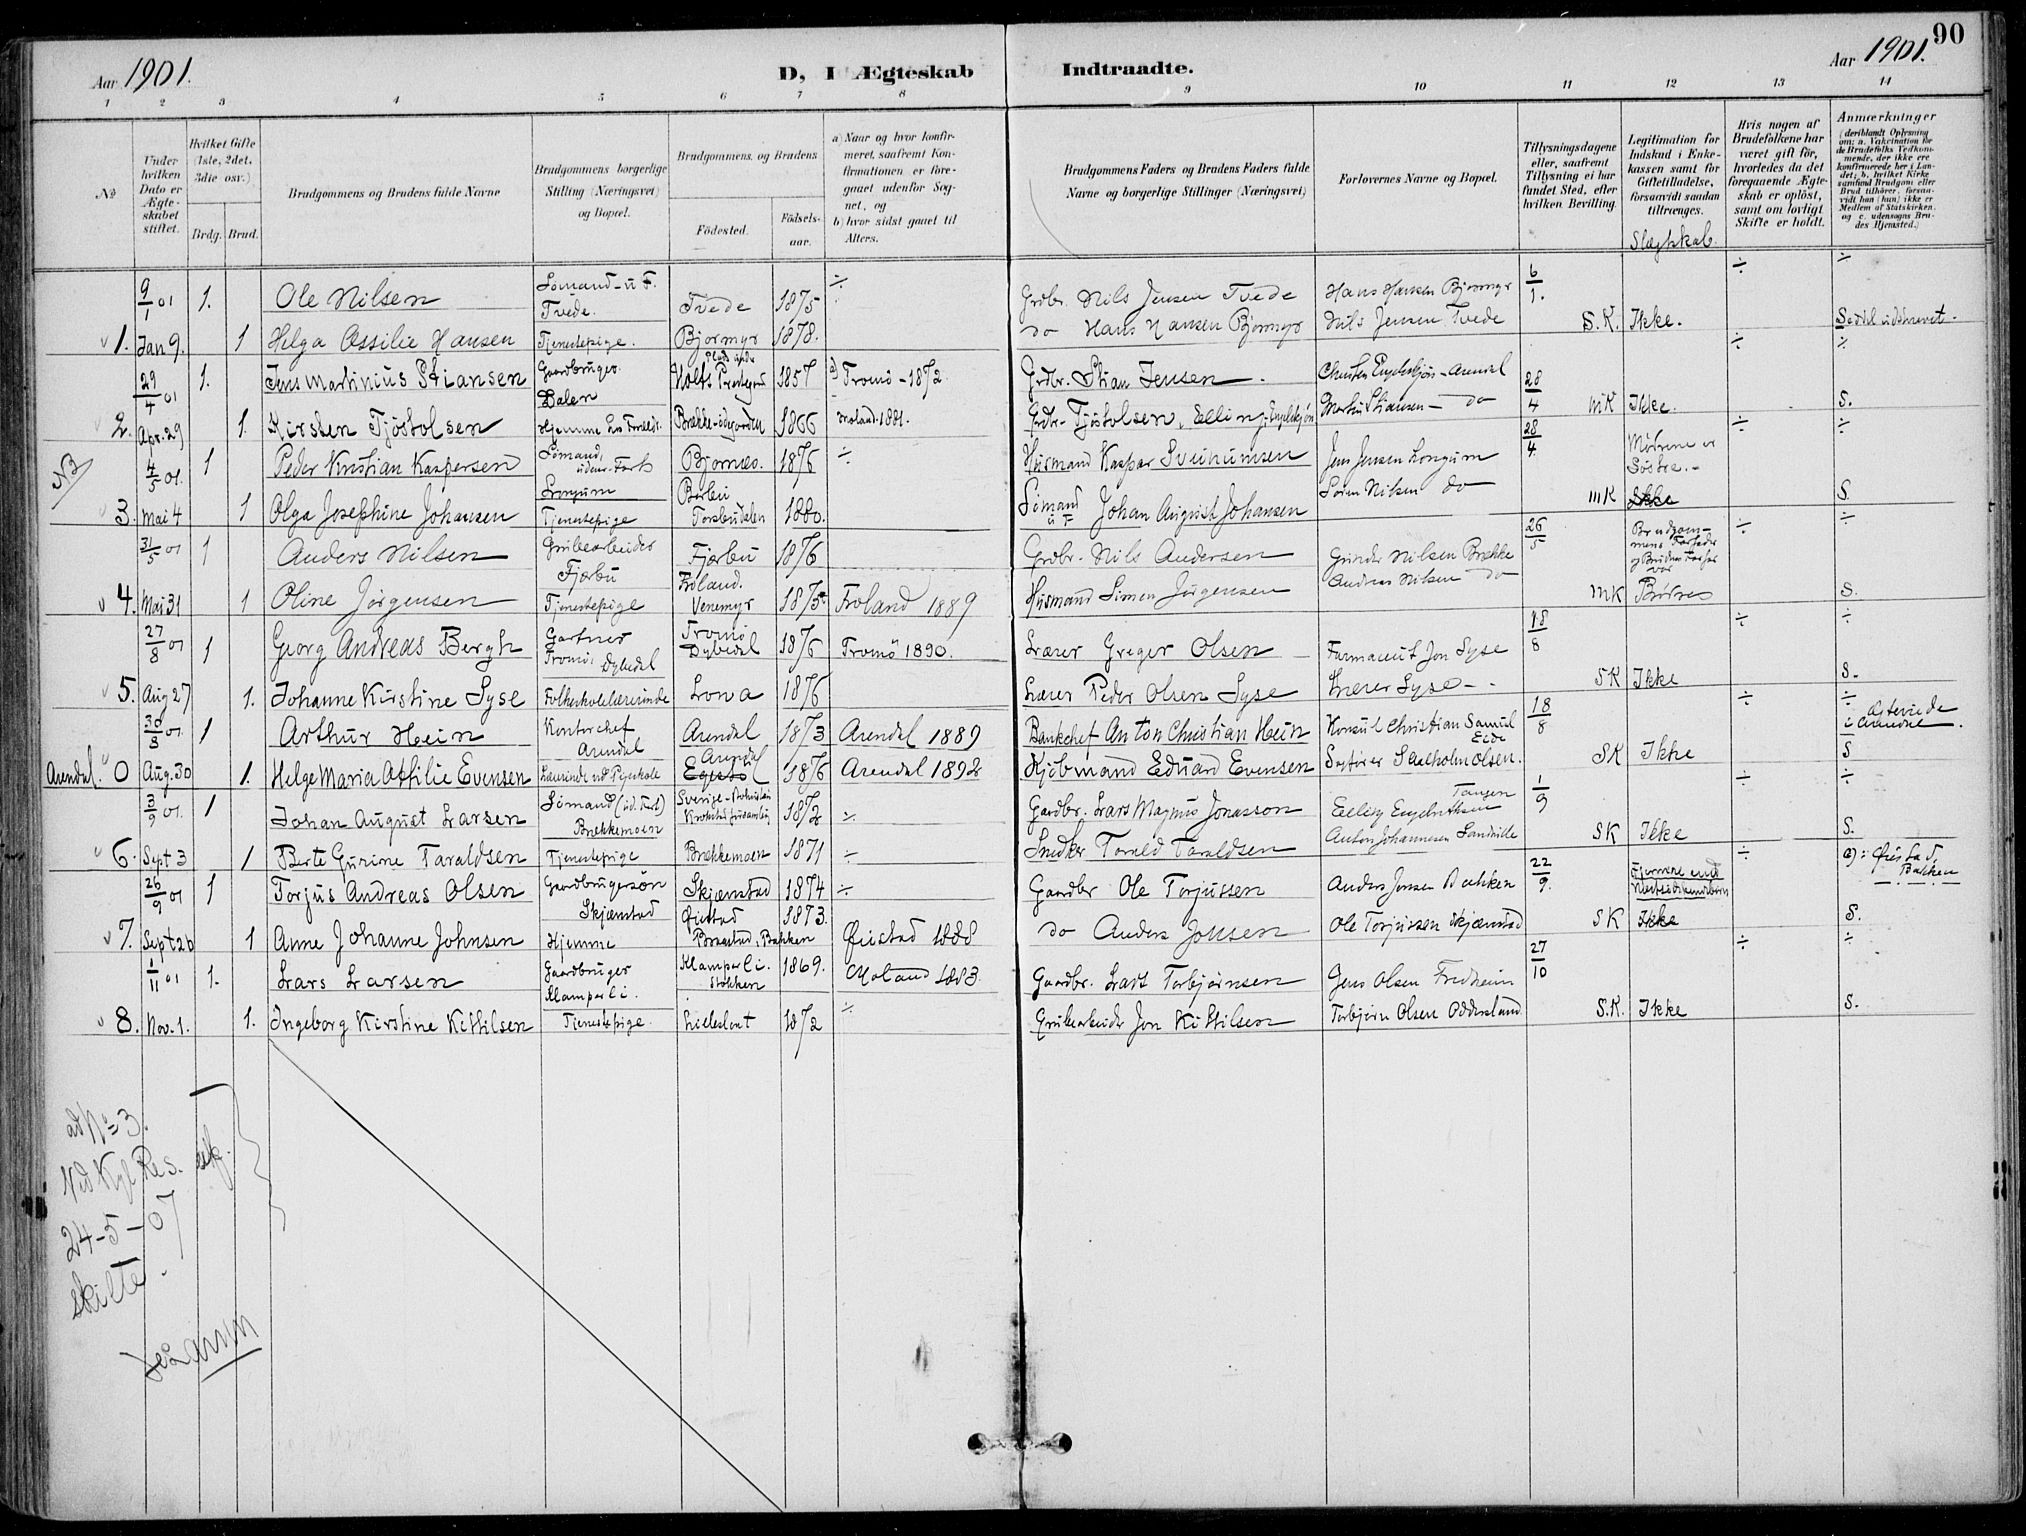 90
Aar 1901.
D, I Ægteskab Indtraadte.
Aar 1901.
1 2 3 4 5 6 7 8 9 10 11 12 13 14
No
Under hvilken Dato er Ægteskabet stiftet.
Hvilket Gifte (1ste, 2det, 3die osv.)
Brdg. Brud.
Brudgommens og Brudens fulde Navne
Brudgommens borgerlige Stilling (Næringsvei) og Bopæl.
Brudgommens og Brudens
Fødested. Fødselsaar.
a) Naar og hvor konfirmeret, saafremt Konfirmationen er foregaaet udenfor Sognet, og
b) hvor sidst gaaet til Alters.
Brudgommens Faders og Brudens Faders fulde Navne og borgerlige Stillinger (Næringsvei)
Forlovernes Navne og Bopæl.
Tillysningsdagene eller, saafremt Tillysning ei har fundet Sted, efter hvilken Bevilling.
Legitimation for Indskud i Enkekassen samt for Giftetilladelse, forsaavidt saadan tiltrænges.
Slægtskab.
Hvis nogen af Brudefolkene har været gift før, hvorledes da det foregaaende Ægteskab er opløst, samt om lovligt Skifte er holdt.
Anmærkninger
(deriblandt Oplysning om: a. Vakcination for de Brudefolks Vedkommende, der ikke ere konfirmerede her i Landet; b. hvilket Kirkesamfund Brudgom eller Brud tilhører, forsaavidt han (hun) ikke er Medlem af Statskirken, og c. udensogns Brudes Hjemsted.)
9/1 01 1. Ole Nilsen Sömand - u. F. Tvede. Tvede 1875 ÷ Grdbr. Nils Jensen Tvede Hans Hansen Bjormyr 6/1. ÷ ÷
1. Jan 9. 1 Helga Ossilie Hansen Tjenestepige. Bjormyr 1878. do Hans Hansen Bjormyr Nils Jensen Tvede S.K. Ikke. Sedel udskrevet.
29/4 01 1. Jens Martinius Stiansen Gaardbruger. Dalen Plads under Holts Prestegrd 1857 a) Tromö - 1872. Grdbr. Stian Jensen Arendal 28/4 ÷ ÷
2. Apr. 29 1. Kirsten Tjöstolsen Hjemme hos Foreldr. Brække-ödegaarden 1866 Moland 1881. Grdbr. Tjöstolsen, Elling Stiansen - do MK Ikke. S.
NB 4/5 01. 1 Peder Kristian Kaspersen Sömand, udenr. Fart Longum Bjornæs. 1876 ÷ Husmand Kaspar Sveinumsen Jens Jensen Longum 28/4 Mödrene er Söstre. ÷ ÷
3. Mai 4 1 Olga Josephine Johansen Tjenestepige Barbu Torsbudalen 1880. Sömand u F Johan August Johansen Sören Nilsen do MK Ikke S.
31/5 01 1 Anders Nilsen Grubearbeider Fjærbu Fjærbu 1876 Grdbr. Nils Andersen Gunder Nilsen Brække 26/5 Brudgommens Farfader og Brudens Farfar var ÷ ÷
4. Mai 31 1 Oline Jörgensen Tjenestepige Froland. Venemyr 1875 Froland 1889 Husmand Simen Jörgensen Andreas Nilsen do MK Brödre S.
27/8 01 1 Georg Andreas Bergh Gartner Tromö, Dybedal Tromö Dybedal 1876 Tromö 1890. Lærer Greger Olsen Farmaceut Jon Lyse 18/8 ÷ ÷
5. Aug 27 1. Johanne Kirstine Lyse Folkeskolelærerinde 1876 Lærer Peder Olsen Lyse Lærer Lyse - SK Ikke S.
30/8 01. 1 Arthur Hein Kontorchef Arendal Arendal 1873 Arendal 1889 Bankchef Anton Christian Hein Konsul Christian Samuel Eide 18/8 ÷ ÷ i Arendal.
Arendal. 0 Aug. 30 1. Helge Maria Ottilie Evensen Lærerinde ved Pigeskole Arendal 1876 Arendal 1892 Kjöbmand Eduard Evensen Sagförer Saxholm Olsen. SK Ikke S
3/9 01. 1 Johan August Larsen Sömand (ud. Fart) Brekkemoen Sverige - 1872 ÷ Gardbr. Lars Magnus Jonasson Tangen 1/9 ÷ ÷
6. Sept 3 1 Berte Gurine Taraldsen Tjenestepige Brekkemoen 1871 ÷ Snedker Tarald Taraldsen Anton Johannesen SK Ikke S.
26/9 01 1 Torjus Andreas Olsen Gaardbrugersön Skjæmstad Skjæmstad 1874 ÷ Gaardbr Ole Torjussen Anders Jonsen Bakken 22/9. ÷ c): Öiestad, Bakken
7. Sept 26 1 Anne Johanne Johnsen Hjemme Öiestad Bråstad, Bakken 1873. Öiestad 1888 do Anders Jonsen Ole Torjussen Skjæmstad SK Ikke S.
1/11 01 1. Lars Larsen Gaardbruger Klamperli. Klamperli. Stokken 1869. Moland 1883. Gaardbr. Lars Torbjörnsen Jens Olsen Fredheim 27/10 ÷ ÷
8. Nov. 1. 1. Ingeborg Kirstine Kittilsen Tjenestepige. 1872 ÷ Grubearbeider Jon Kittilsen Torbjörn Olsen S.K. Ikke S.
ad No 3.
Ved Kgl Res. af
24-5-07
skilte.